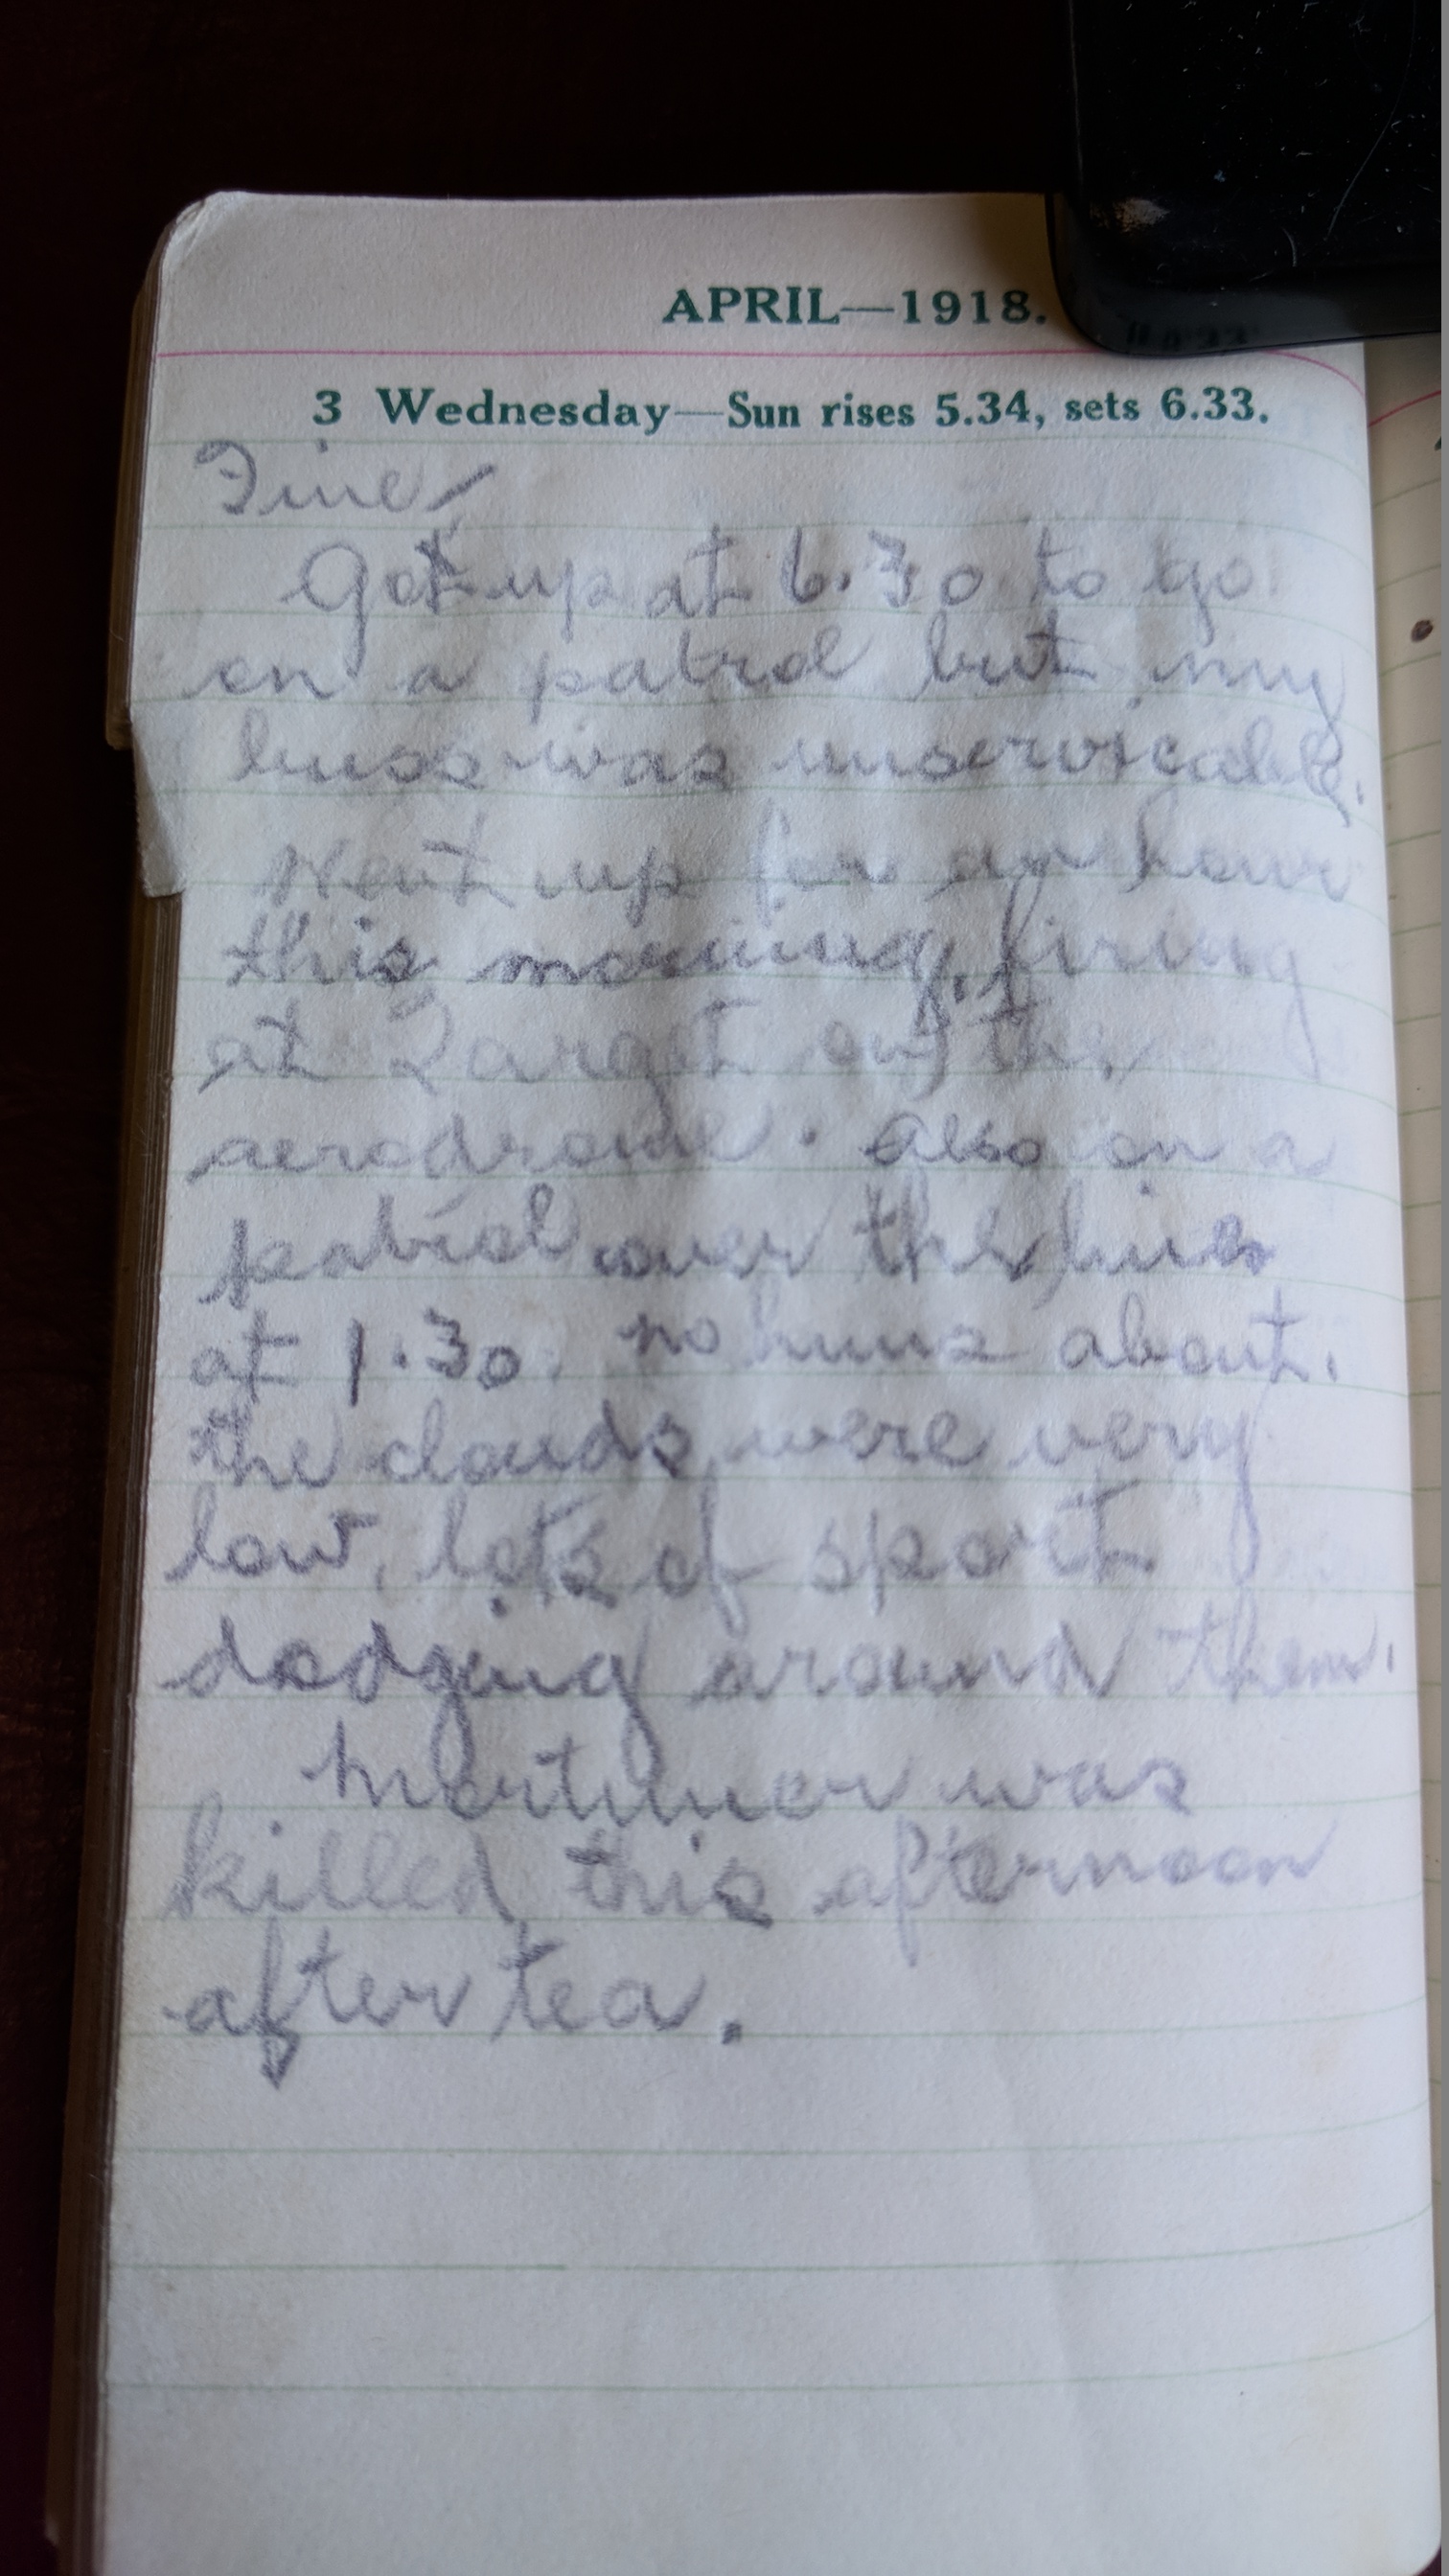 APRIL—1918.
3 Wednesday—Sun rises 5.34, sets 6.33.
Fine/
Got up at 6.30 to go
on a patrol but my
buss was unservicable.
Went up for an hour
this morning, firing
at Target on the
aerodrome. also on a
patrol over the lines
at 1.30. no huns about.
the clouds were very
low, lots of sport
dodging around them.
Mortimer was
killed this afternoon
after tea.